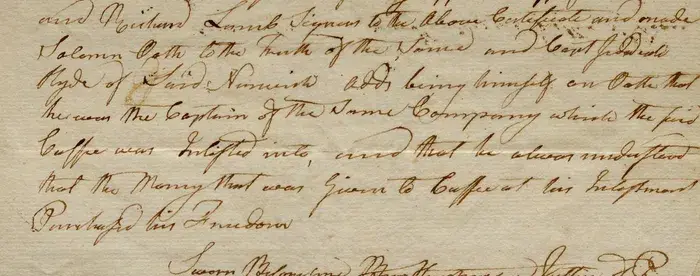 and Richard Lamb Signers to the Above Certificate and made
Solemn Oath to the Truth of the Same and Capt Jedediah
Hyde of Said Norwich adds being himself on Oath that
he was the Captain of the Same Company which the said
Cuffee was Inlisted into, and that he always understood
that the Money that was Given to Cuffee at his Inlistment
Purchased his Freedom
Sworn Before me